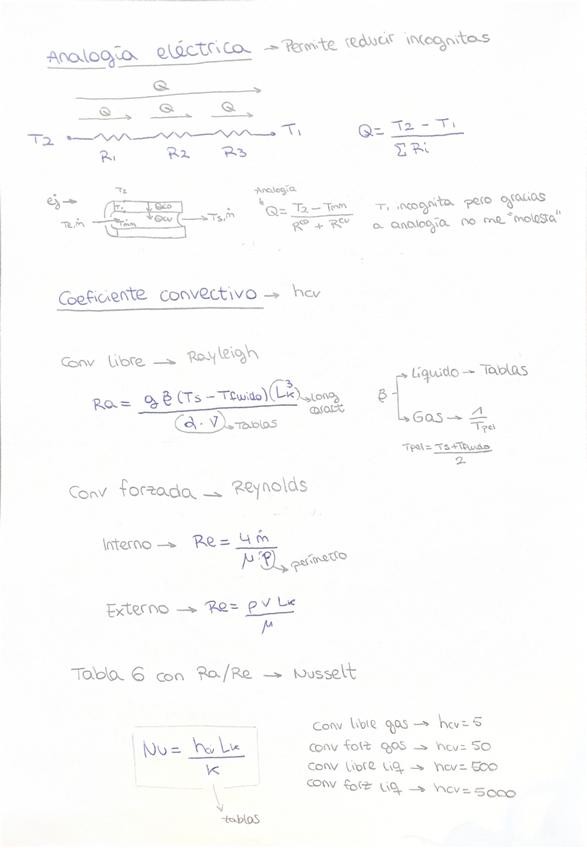 Analogía eléctrica → Permite reducir incognitas
Q
Q Q Q
T2 R1 R2 R3 T1
Q = (T2 - T1) / Σ Ri
ej →
T2
T1 QCD
QCV
Te, ṁ Tmm → Ts, ṁ
Analogía
Q = (T2 - Tmm) / (R^CD + R^CV)
T1 incognita pero gracias
a analogía no me "molesta"
Coeficiente convectivo → hcv
Conv libre → Rayleigh
Ra = g β (Ts - Tfluido) (Lk³) / (α · ν)
→ Long caract
→ Tablas
β → Líquido → Tablas
→ Gas → 1 / Tpel
Tpel = (Ts + Tfluido) / 2
Conv forzada → Reynolds
Interno → Re = 4 ṁ / (μ · P) → perímetro
Externo → Re = ρ v Lk / μ
Tabla 6 con Ra/Re → Nusselt
Nu = hcv Lk / K
→ tablas
conv libre gas → hcv = 5
conv forz gas → hcv = 50
conv libre liq → hcv = 500
conv forz liq → hcv = 5000